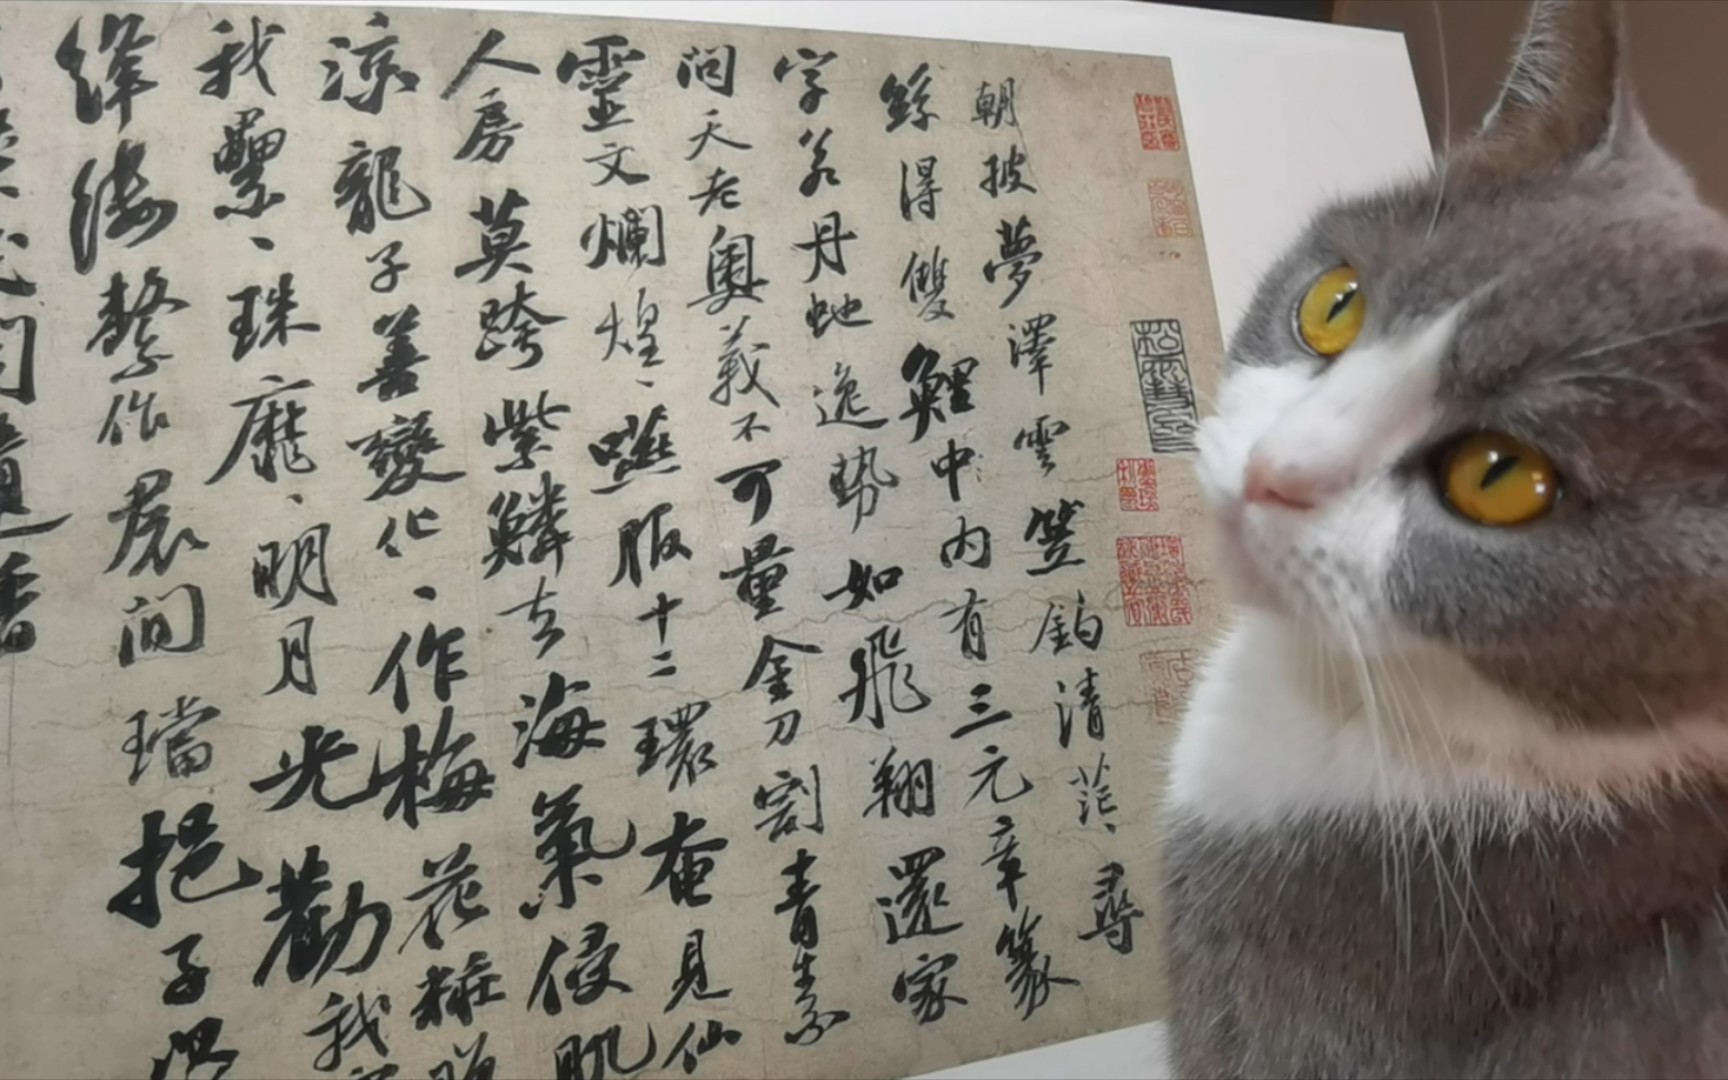 朝披夢澤雲笠釣清茫、尋
絲得雙鯉中內有三元章篆
字若丹虵逸勢如飛翔還家
問天老奧義不可量金刀割青素
靈文爛煌、嚥服十二環奄見仙
人房莫跨紫鱗去海氣侵肌
涼龍子善變化、作梅花粧贈
我纍、珠靡、明月光勸我
絳縷繫作裾間璫挹子
聞遺香